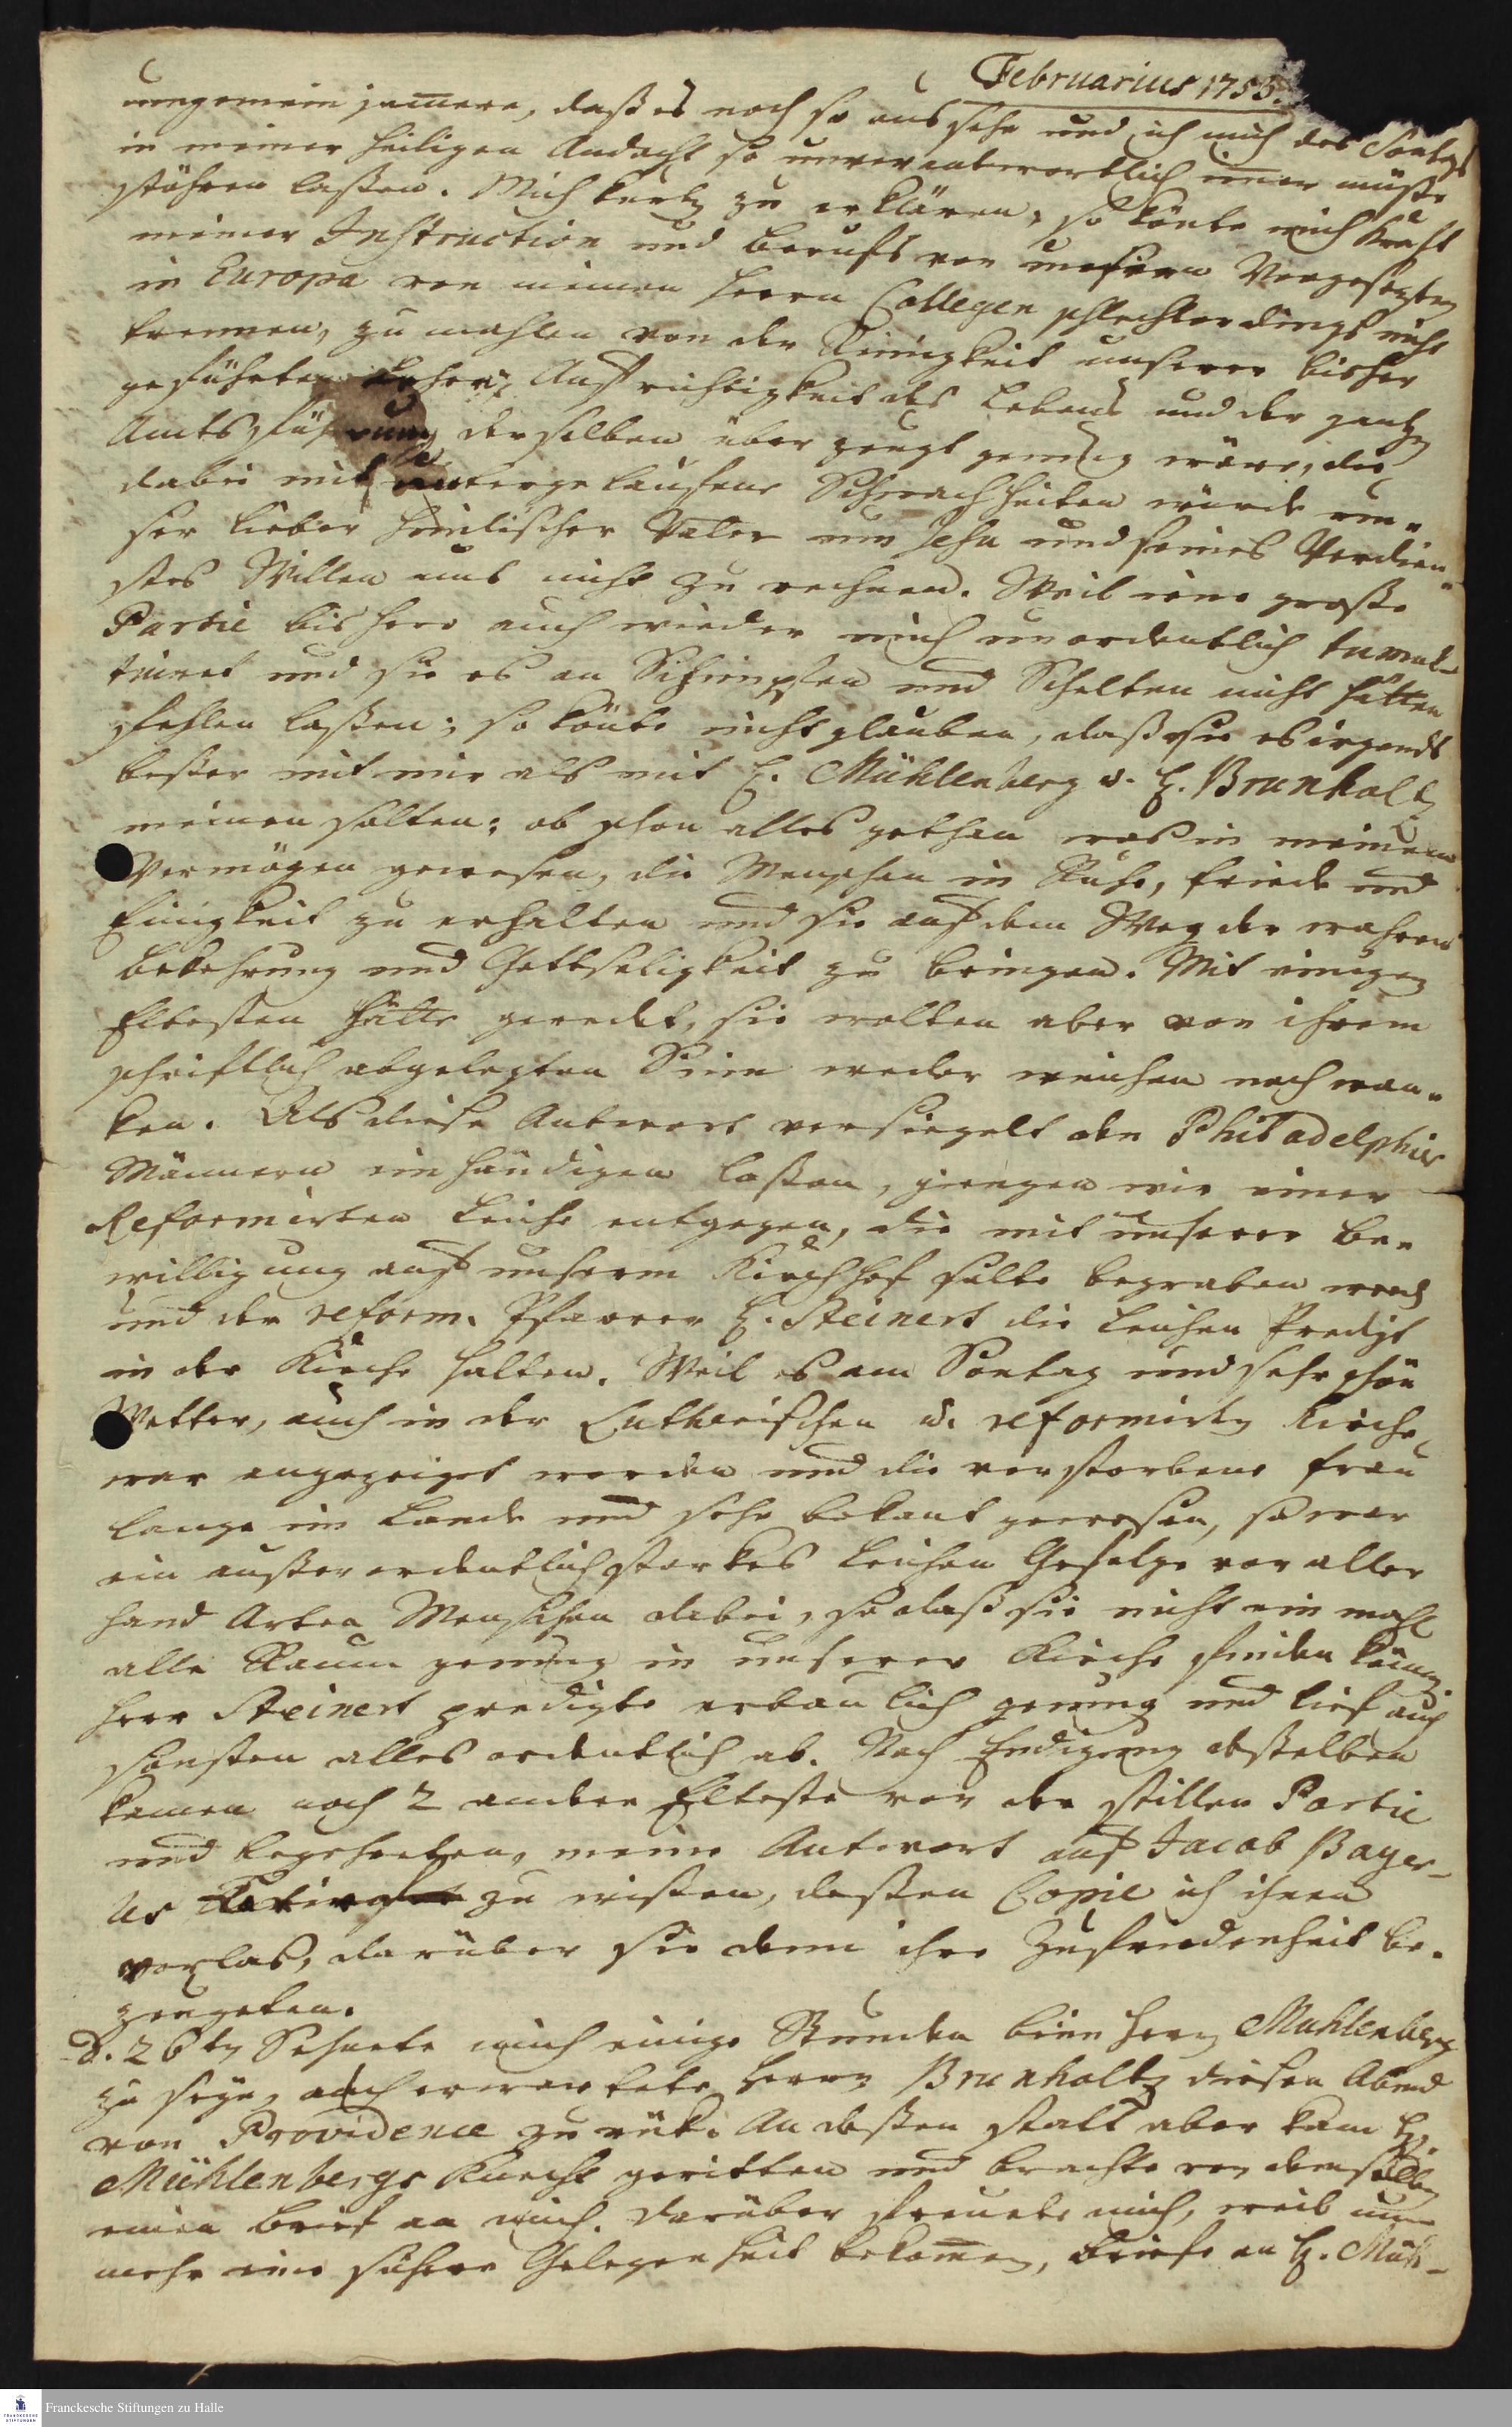 Februarius 1753.
ungemein jam̅ere, daß es noch so aussehe und ich mich des Sontags
in meiner heiligen Andacht so unverantwortlich im̅er müste
stöhren laßen. Mich kurtz zu erklären, so könte mich Kraft
meiner Instruction und Berufs von unsern Vorgesezten
in Europa von meinen Herrn Collegen schlechterdings nicht
trennen, zu mahlen von der Einigkeit unserer bisher
geführten Lehre, Aufrichtigkeit des Lebens und der gantzen
Amtsführung derselben überzeugt genug wäre, die
dabei mit untergelaufene Schwachheiten würde un-
ser lieber himlischer Vater um Jesu und seines Verdien-
stes Willen uns nicht zu rechnen. Weil eine große
Partie bishero auch wieder mich unordentlich tumul-
tuiret und sie es an Schimpfen und Schelten nicht hätten
fehlen laßen; so könte nicht glauben, daß sie es irgends
beßer mit mir als mit H. Mühlenberg u. H. Brunholtz
meinen solten; ob schon alles gethan was in meinem
Vermögen gewesen, die Menschen in Ruhe, Friede und
Einigkeit zu erhalten und sie auf den Weg der wahren
Bekehrung und Gottseligkeit zu bringen. Mit einigen
Eltesten hätte geredet, sie wolten aber von ihrem
schriftlich abgelegten Sinn weder weichen noch wan-
ken. Als diese Antwort versiegelt den Philadelphier
Männern einhändigen laßen, giengen wir einer
Reformirten Leiche entgegen, die mit unserer Be-
willigung auf unserm Kirchhof solte begraben werden
und der reform. Pfarrer H. Steinert die Leichen Predigt
in der Kirche halten. Weil es am Sontag und sehr schön
Wetter, auch in der Lutherischen u. reformirten Kirche
war angezeiget worden und die verstorbene Frau
lange im Lande und sehr bekant gewesen, so war
ein außerordentlich starkes Leichen Gefolge von aller
hand Arten Menschen dabei, so daß sie nicht ein mahl
alle Raum genung in unserer Kirche finden können.
Herr Steinert predigte erbaulich genung und lief auch
sonsten alles ordentlich ab. Nach Endigung deßelben
kamen noch 2 andere Elteste von der stillen Partie
und begehrten, meine Antwort auf Jacob Bayer-
les zu wißen, deßen Copie ich ihnen
vorlas, darüber sie denn ihre Zufriedenheit be-
zeugeten.
D. 26ten Sehnete mich einige Stunden beim Herrn Muhlenberg
zu seyn, auch erwartete Herrn Brunholtz diesen Abend
von Providence zurük. An deßen statt aber kam H.
Mühlenbergs Knecht geritten und brachte von demselben
einen Brief an mich. Darüber freuete mich, weil nun
mehr eine sichere Gelegenheit bekom̅en, Briefe an H. Müh-
Franckesche Stiftungen zu Halle